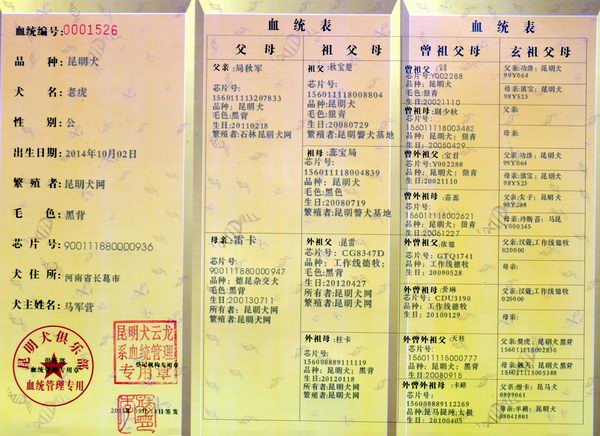 血统编号:0001526
品 种: 昆明犬
犬 名: 老虎
性 别: 公
出生日期: 2014年10月02日
繁 殖 者: 昆明犬网
毛 色: 黑背
芯 片 号: 900111880000936
犬 住 所: 河南省长葛市
犬主姓名: 马军营
昆明犬俱乐部
血统管理专用章
血统管理专用
昆明犬云龙
系血统管理
专用章
登记机构专用章
血统表
父 母
祖 父 母
父亲:局秋军
芯片号:
156011113207833
品种: 昆明犬
毛色:黑背
生日:20110218
繁殖者:石林昆明犬网
母亲:雷卡
芯片号:
900111880000947
品种: 德昆杂交犬
毛色:黑背
生日:200130711
所有者:昆明犬网
繁殖者:昆明犬网
祖父:秋宝超
芯片号:
156011118008804
品种: 昆明犬
毛色: 狼青
生日:20080729
繁殖者:昆明警犬基地
祖母:蕊宝局
芯片号:
156011118004839
品种: 昆明犬
毛色: 黑色
生日:20080719
繁殖者:昆明警犬基地
外祖父: 昆雷
芯片号: CG8347D
品种:工作线德牧;
毛色:黑背
生日:20120427
所有者:昆明犬网
繁殖者:昆明犬网
外祖母:柱卡
芯片号:
156008889111119
品种: 昆明犬; 黑背
生日:20120118
所有者:昆明犬网
繁殖者:昆明犬网
血统表
曾祖父母
玄祖父母
曾祖父:
芯片号:Y002288
品种: 昆明犬
毛色:狼青
生日:20021110
曾祖母:
芯片号:
156011118003482
品种: 昆明犬; 狼青
生日:20050429
曾外祖父:宝君
芯片号:Y002288
品种: 昆明犬; 狼青
生日:20021110
曾外祖母:
芯片号:
156011118002621
品种: 昆明犬; 狼青
生日:20061227
外曾祖父:
芯片号:GTQ1741
品种: 工作线德牧
生日:20090528
外曾祖母:爱琳
芯片号:CDU3190
品种:工作线德牧
生日:20100129
外曾外祖父:天柱
芯片号:
156011115000777
品种: 昆明犬; 黑背
生日:20080915
外曾外祖母:卡路
芯片号:
156008889112269
品种:
生日:20100405
父亲:功洛; 昆明犬
99Y064
母亲:滇宝; 昆明犬
98Y523
父亲:
母亲:
父亲:功洛; 昆明犬
99Y064
母亲:滇宝; 昆明犬
98Y523
父亲:
母亲:
Y000345
父亲:汉葳;工作线德牧
020000
母亲:
父亲:汉葳;工作线德牧
020000
母亲:
父亲:
156011115002856
母亲:
156011115003388
父亲:
0809061
母亲:
08041801